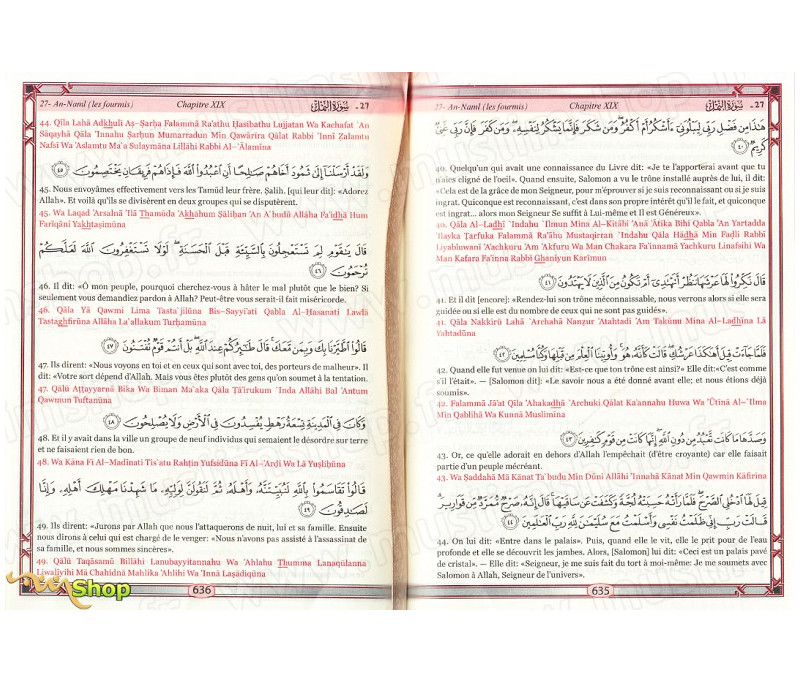 27- An-Naml (les fourmis) Chapitre XIX سورة النمل - 27
هَٰذَا مِن فَضْلِ رَبِّى لِيَبْلُوَنِىٓ ءَأَشْكُرُ أَمْ أَكْفُرُ ۖ وَمَن شَكَرَ فَإِنَّمَا يَشْكُرُ لِنَفْسِهِۦ ۖ وَمَن كَفَرَ فَإِنَّ رَبِّى غَنِىٌّ
كَرِيمٌ ٤٠
40. Quelqu'un qui avait une connaissance du Livre dit: «Je te l'apporterai avant que tu
n'aies cligné de l'oeil». Quand ensuite, Salomon a vu le trône installé auprès de lui, il dit:
«Cela est de la grâce de mon Seigneur, pour m'éprouver si je suis reconnaissant ou si je suis
ingrat. Quiconque est reconnaissant, c'est dans son propre intérêt qu'il le fait, et quiconque
est ingrat... alors mon Seigneur Se suffit à Lui-même et Il est Généreux».
40. Qāla Al-Ladhī `Indahu `Ilmun Mina Al-Kitābi 'Anā 'Ātīka Bihi Qabla 'An Yartadda
'Ilayka Ţarfuka Falammā Ra'āhu Mustaqirran `Indahu Qāla Hādhā Min Fađli Rabbī
Liyabluwanī 'A'achkuru 'Am 'Akfuru Wa Man Chakara Fa'innamā Yachkuru Linafsihi Wa
Man Kafara Fa'inna Rabbī Ghaniyun Karīmun
قَالَ نَكِّرُوا۟ لَهَا عَرْشَهَا نَنظُرْ أَتَهْتَدِىٓ أَمْ تَكُونُ مِنَ ٱلَّذِينَ لَا يَهْتَدُونَ ٤١
41. Et il dit [encore]: «Rendez-lui son trône méconnaissable, nous verrons alors si elle sera
guidée ou si elle est du nombre de ceux qui ne sont pas guidés».
41. Qāla Nakkirū Lahā `Archahā Nanžur 'Atahtadī 'Am Takūnu Mina Al-Ladhīna Lā
Yahtadūna
فَلَمَّا جَآءَتْ قِيلَ أَهَٰكَذَا عَرْشُكِ ۖ قَالَتْ كَأَنَّهُۥ هُوَ ۚ وَأُوتِينَا ٱلْعِلْمَ مِن قَبْلِهَا وَكُنَّا مُسْلِمِينَ ٤٢
42. Quand elle fut venue on lui dit: «Est-ce que ton trône est ainsi?» Elle dit:«C'est comme
s'il l'était». — [Salomon dit]: «Le savoir nous a été donné avant elle; et nous étions déjà
soumis».
42. Falammā Jā'at Qīla 'Ahakadhā `Archuki Qālat Ka'annahu Huwa Wa 'Ūtīnā Al-`Ilma
Min Qablihā Wa Kunnā Muslimīna
وَصَدَّهَا مَا كَانَت تَّعْبُدُ مِن دُونِ ٱللَّهِ ۖ إِنَّهَا كَانَتْ مِن قَوْمٍ كَٰفِرِينَ ٤٣
43. Or, ce qu'elle adorait en dehors d'Allah l'empêchait (d'être croyante) car elle faisait
partie d'un peuple mécréant.
43. Wa Şaddahā Mā Kānat Ta`budu Min Dūni Allāhi 'Innahā Kānat Min Qawmin Kāfirīna
قِيلَ لَهَا ٱدْخُلِى ٱلصَّرْحَ ۖ فَلَمَّا رَأَتْهُ حَسِبَتْهُ لُجَّةً وَكَشَفَتْ عَن سَاقَيْهَا ۚ قَالَ إِنَّهُۥ صَرْحٌ مُّمَرَّدٌ مِّن قَوَارِيرَ ۗ
قَالَتْ رَبِّ إِنِّى ظَلَمْتُ نَفْسِى وَأَسْلَمْتُ مَعَ سُلَيْمَٰنَ لِلَّهِ رَبِّ ٱلْعَٰلَمِينَ ٤٤
44. On lui dit: «Entre dans le palais». Puis, quand elle le vit, elle le prit pour de l'eau
profonde et elle se découvrit les jambes. Alors, [Salomon] lui dit: «Ceci est un palais pavé
de cristal». — Elle dit: «Seigneur, je me suis fait du tort à moi-même: Je me soumets avec
Salomon à Allah, Seigneur de l'univers».
635
27- An-Naml (les fourmis) Chapitre XIX سورة النمل - 27
44. Qīla Lahā Adkhulī Aş-Şarĥa Falammā Ra'athu Ĥasibathu Lujjatan Wa Kachafat `An
Sāqayhā Qāla 'Innahu Şarĥun Mumarradun Min Qawārīra Qālat Rabbi 'Innī Žalamtu
Nafsī Wa 'Aslamtu Ma`a Sulaymāna Lillāhi Rabbi Al-`Ālamīna
وَلَقَدْ أَرْسَلْنَآ إِلَىٰ ثَمُودَ أَخَاهُمْ صَٰلِحًا أَنِ ٱعْبُدُوا۟ ٱللَّهَ فَإِذَا هُمْ فَرِيقَانِ يَخْتَصِمُونَ ٤٥
45. Nous envoyâmes effectivement vers les Tamūd leur frère. Şalih. [qui leur dit]: «Adorez
Allah». Et voilà qu'ils se divisèrent en deux groupes qui se disputèrent.
45. Wa Laqad 'Arsalnā 'Ilá Thamūda 'Akhāhum Şāliĥan 'An A`budū Allāha Fa'idhā Hum
Farīqāni Yakhtaşimūna
قَالَ يَٰقَوْمِ لِمَ تَسْتَعْجِلُونَ بِٱلسَّيِّئَةِ قَبْلَ ٱلْحَسَنَةِ ۖ لَوْلَا تَسْتَغْفِرُونَ ٱللَّهَ لَعَلَّكُمْ
تُرْحَمُونَ ٤٦
46. Il dit: «Ô mon peuple, pourquoi cherchez-vous à hâter le mal plutôt que le bien? Si
seulement vous demandiez pardon à Allah? Peut-être vous serait-il fait miséricorde.
46. Qāla Yā Qawmi Lima Tasta`jilūna Bis-Sayyi'ati Qabla Al-Ĥasanati Lawlā
Tastaghfirūna Allāha La`allakum Turĥamūna
قَالُوا۟ ٱطَّيَّرْنَا بِكَ وَبِمَن مَّعَكَ ۚ قَالَ طَٰٓئِرُكُمْ عِندَ ٱللَّهِ ۖ بَلْ أَنتُمْ قَوْمٌ تُفْتَنُونَ ٤٧
47. Ils dirent: «Nous voyons en toi et en ceux qui sont avec toi, des porteurs de malheur». Il
dit: «Votre sort dépend d'Allah. Mais vous êtes plutôt des gens qu'on soumet à la tentation.
47. Qālū Aţţayyarnā Bika Wa Biman Ma`aka Qāla Ţā'irukum `Inda Allāhi Bal 'Antum
Qawmun Tuftanūna
وَكَانَ فِى ٱلْمَدِينَةِ تِسْعَةُ رَهْطٍ يُفْسِدُونَ فِى ٱلْأَرْضِ وَلَا يُصْلِحُونَ ٤٨
48. Et il y avait dans la ville un groupe de neuf individus qui semaient le désordre sur terre
et ne faisaient rien de bon.
48. Wa Kāna Fī Al-Madīnati Tis`atu Rahţin Yufsidūna Fī Al-'Arđi Wa Lā Yuşliĥūna
قَالُوا۟ تَقَاسَمُوا۟ بِٱللَّهِ لَنُبَيِّتَنَّهُۥ وَأَهْلَهُۥ ثُمَّ لَنَقُولَنَّ لِوَلِيِّهِۦ مَا شَهِدْنَا مَهْلِكَ أَهْلِهِۦ وَإِنَّا
لَصَٰدِقُونَ ٤٩
49. Ils dirent: «Jurons par Allah que nous l'attaquerons de nuit, lui et sa famille. Ensuite
nous dirons à celui qui est chargé de le venger: «Nous n'avons pas assisté à l'assassinat de
sa famille, et nous sommes sincères».
49. Qālū Taqāsamū Billāhi Lanubayyitannahu Wa 'Ahlahu Thumma Lanaqūlanna
Liwalīyihi Mā Chahidnā Mahlika 'Ahlihi Wa 'Innā Laşādiqūna
636
Shop